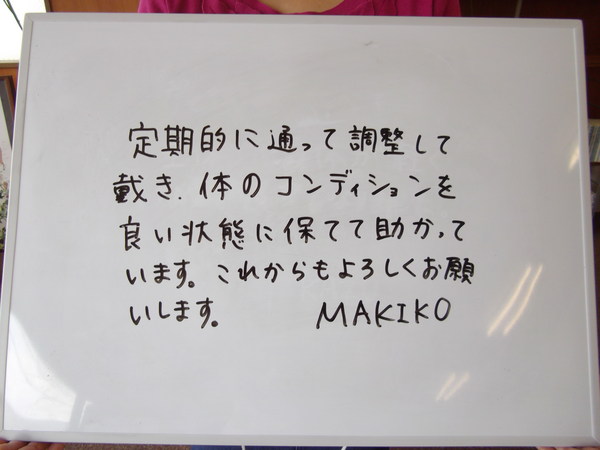 定期的に通って調整して
戴き、体のコンディションを
良い状態に保てて助かって
います。これからもよろしくお願
いします。 MAKIKO